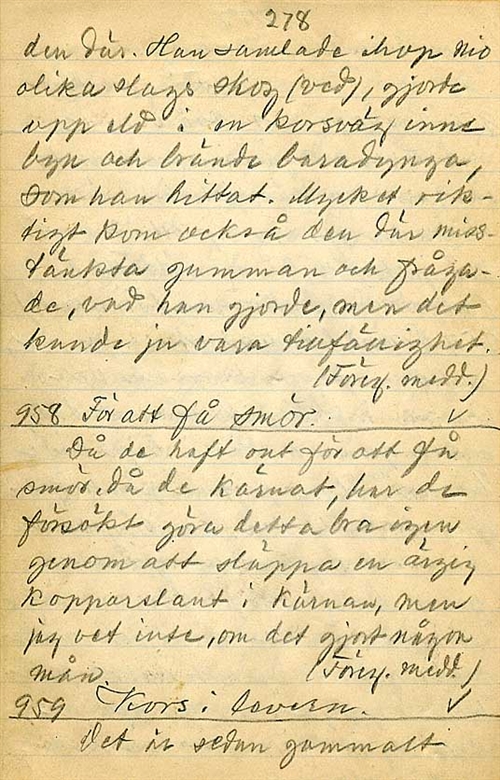 278
den där. Han samlade ihop nio
olika slags skog (ved), gjorde
upp eld i en korsväg inne
byn och brände
som han hittat. Mycket rik-
tigt kom också den där miss-
tänkta gumman och fråga-
de, vad han gjorde, men det
kunde ju vara tillfällighet.
(Föreg. medd.)
958 För att få smör. ✓
Då de haft ont för att få
smör, då de kärnat, har de
försökt göra detta bra igen
genom att släppa en ärgig
kopparslant i kärnan, men
jag vet inte, om det gjort någon
mån. (Föreg. medd.)
959 Kors i ✓
Det är sedan gammalt